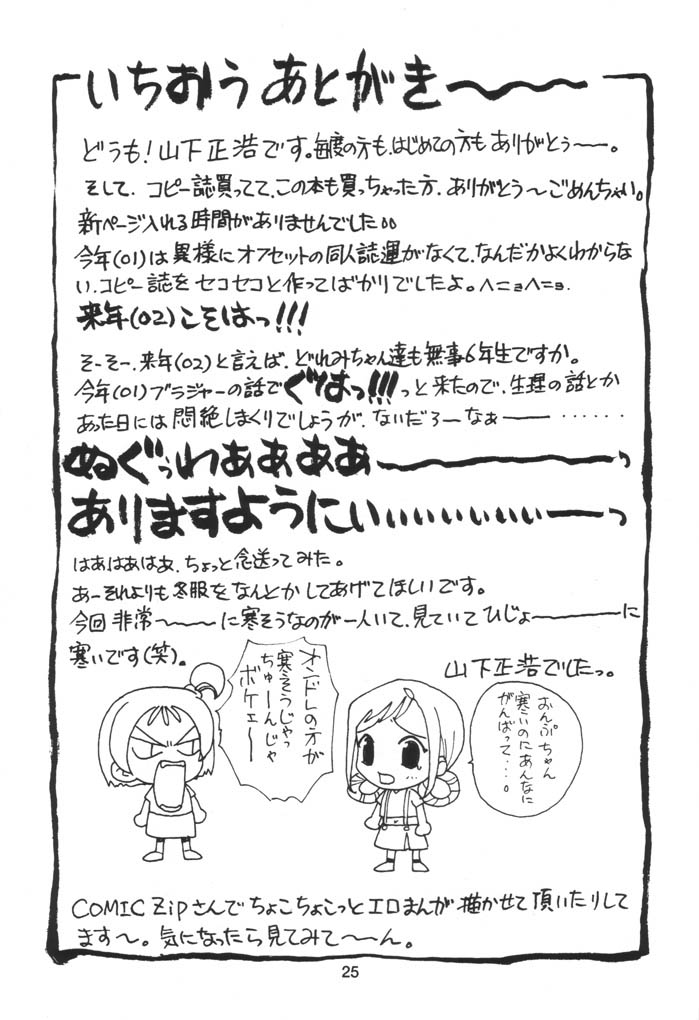 いちおう あとがき〜〜〜
どうも!山下正浩です。毎度の方も、はじめての方もありがとぅ〜。
そして、コピー誌買ってて、この本も買っちゃった方、ありがとう〜ごめんちゃい。
新ページ入れる時間がありませんでした。。
今年(01)は異様にオフセットの同人誌運がなくて、なんだかよくわからな
い、コピー誌をセコセコと作ってばかりでしたよ。ヘニョヘニョ.
来年(02)こそはっ!!!
そーそー、来年(02)と言えば、どれみちゃん達も無事6年生ですか。
今年(01)ブラジャーの話でぐはっ!!!っと来たので、生理の話とか
あった日には悶絶しまくりでしょうが、ないだろーなぁ――‥‥‥
ぬぐっわぁぁぁぁ〜〜〜っ
ありますようにぃぃぃぃぃぃぃぃ――っ
はぁはぁはぁ、ちょっと念送ってみた。
あーそれよりも冬服をなんとかしてあげてほしいです。
今回非常〜〜〜に寒そうなのが一人いて、見ていてひじょ―――に
寒いです(笑)。
山下正浩でしたっ。
オンドレの方が
寒そうじゃっ
ちゅーんじゃ
ボケェ〜
おんぷちゃん
寒いのにあんなに
がんばって・・・。
COMIC Zipさんでちょこちょこっとエロまんが、描かせて頂いたりして
ます〜。気になったら見てみて〜〜ん。
25